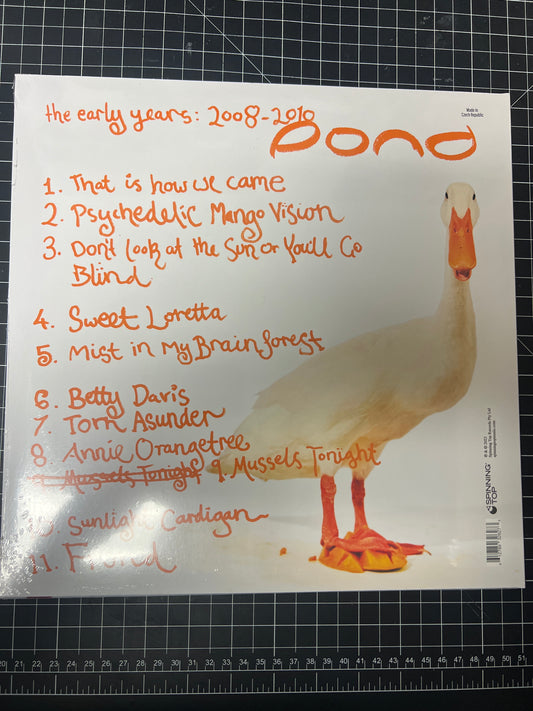 the early years: 2008-2010
pond
Made in
Czech Republic
1. That is how we came
2. Psychedelic Mango Vision
3. Don't look at the Sun or You'll Go
Blind
4. Sweet Loretta
5. Mist in My Brain forest
6. Betty Davis
7. Torn Asunder
8 Annie Orangetree
9. Mussels Tonight 9. Mussels Tonight
Sunlight Cardigan
11. Fried
SPINNING
TOP
20 21 22 23 24 25 26 27 28 29 30 31 32 33 34 35 36 37 38 39 40 41 42 43 44 45 46 47 48 49 50 51